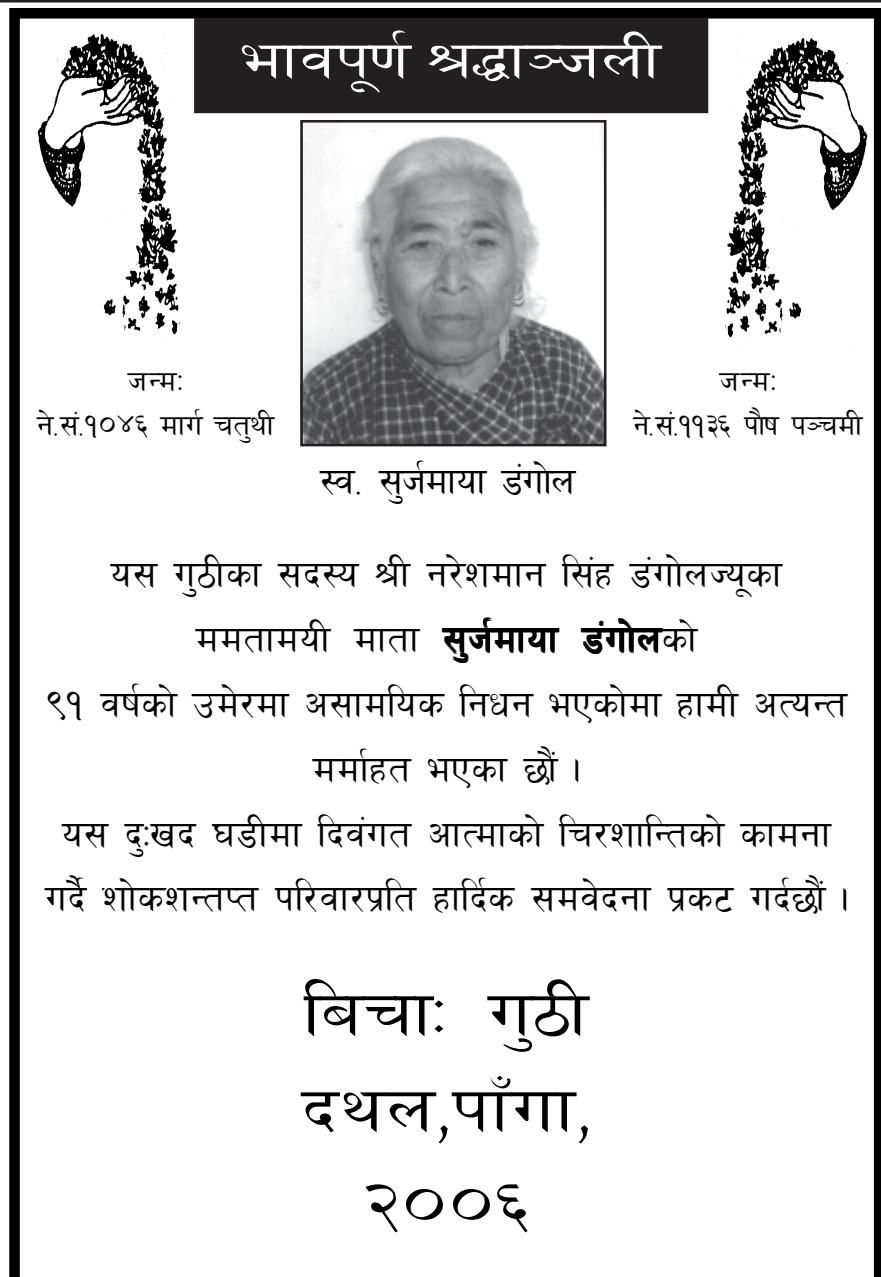 भावपूर्ण श्रद्धाञ्जली
जन्मः
ने.सं.१०४६ मार्ग चतुथी
जन्मः
ने.सं.११३६ पौष पञ्चमी
स्व. सुर्जमाया डंगोल
यस गुठीका सदस्य श्री नरेशमान सिंह डंगोलज्यूका
ममतामयी माता सुर्जमाया डंगोलको
९१ वर्षको उमेरमा असामयिक निधन भएकोमा हामी अत्यन्त
मर्माहत भएका छौं ।
यस दुःखद घडीमा दिवंगत आत्माको चिरशान्तिको कामना
गर्दै शोकशन्तप्त परिवारप्रति हार्दिक समवेदना प्रकट गर्दछौं ।
बिचाः गुठी
दथल,पाँगा,
२००६